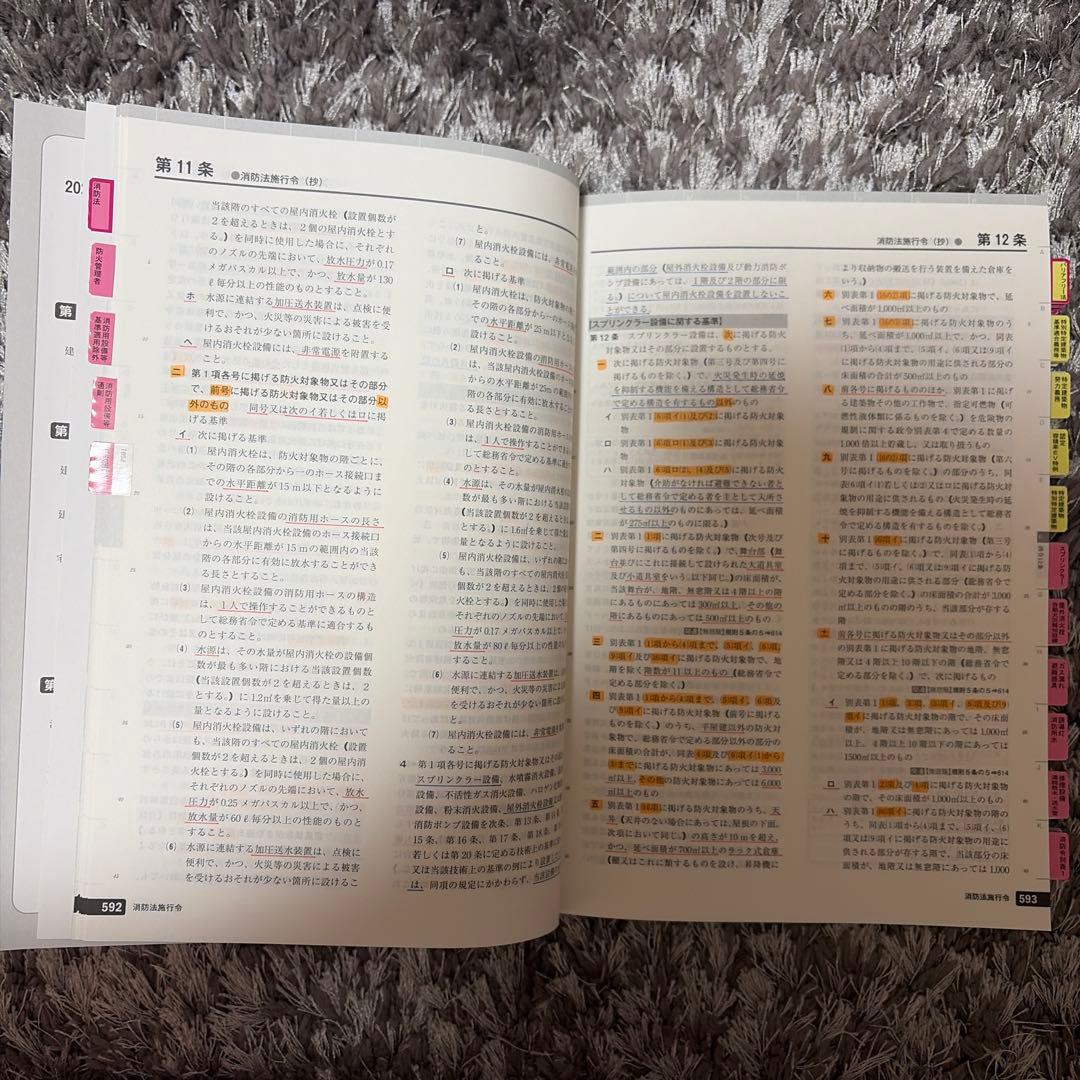 第11条 ●消防法施行令(抄)
当該階のすべての屋内消火栓(設置個数が
2を超えるときは、2個の屋内消火栓とす
る。)を同時に使用した場合に、それぞれ
のノズルの先端において、放水圧力が0.17
メガパスカル以上で、かつ、放水量が130
ℓ毎分以上の性能のものとすること。
ホ 水源に連結する加圧送水装置は、点検に便
利で、かつ、火災等の災害による被害を受
けるおそれが少ない箇所に設けること。
ヘ 屋内消火栓設備には、非常電源を附置する
こと。
二 第1項各号に掲げる防火対象物又はその部分
で、前号に掲げる防火対象物又はその部分以
外のもの 同号又は次のイ若しくはロに掲
げる基準
イ 次に掲げる基準
(1) 屋内消火栓は、防火対象物の階ごとに、
その階の各部分から一のホース接続口ま
での水平距離が15m以下となるように
設けること。
(2) 屋内消火栓設備の消防用ホースの長さ
は、当該屋内消火栓設備のホース接続口
からの水平距離が15mの範囲内の当該
階の各部分に有効に放水することができ
る長さとすること。
(3) 屋内消火栓設備の消防用ホースの構造
は、1人で操作することができるものと
して総務省令で定める基準に適合するも
のとすること。
(4) 水源は、その水量が屋内消火栓の設置個
数が最も多い階における当該設置個数
(当該設置個数が2を超えるときは、2
とする。)に1.2㎥を乗じて得た量以上の
量となるように設けること。
(5) 屋内消火栓設備は、いずれの階において
も、当該階のすべての屋内消火栓(設置
個数が2を超えるときは、2個の屋内消
火栓とする。)を同時に使用した場合に、
それぞれのノズルの先端において、放水
圧力が0.25メガパスカル以上で、かつ、
放水量が60ℓ毎分以上の性能のものと
すること。
(6) 水源に連結する加圧送水装置は、点検に
便利で、かつ、火災等の災害による被害
を受けるおそれが少ない箇所に設けるこ
と。
(7) 屋内消火栓設備には、非常電源
ること。
ロ 次に掲げる基準
(1) 屋内消火栓は、防火対象物の
その階の各部分から一のホース接
での水平距離が25m以下となる
設けること。
(2) 屋内消火栓設備の消防用ホース
は、当該屋内消火栓設備のホース
からの水平距離が25mの範囲
階の各部分に有効に放水する
る長さとすること。
(3) 屋内消火栓設備の消防用ホース
は、1人で操作することができ
して総務省令で定める基準に
のとすること。
(4) 水源は、その水量が屋内消火栓
数が最も多い階における当該
(当該設置個数が2を超える
とする。)に1.6㎥を乗じて得た量
量となるように設けること。
(5) 屋内消火栓設備は、いずれの階
も、当該階のすべての屋内消火栓
個数が2を超えるときは、2個の
火栓とする。)を同時に使用した
それぞれのノズルの先端において
圧力が0.17メガパスカル以上で、
放水量が80ℓ毎分以上の性能の
すること。
(6) 水源に連結する加圧送水装置は、
便利で、かつ、火災等の災害による
を受けるおそれが少ない箇所に設
と。
(7) 屋内消火栓設備には、非常電源を
ること。
4 第1項各号に掲げる防火対象物又はその
スプリンクラー設備、水噴霧消火設備、泡
設備、不活性ガス消火設備、ハロゲン化物
設備、粉末消火設備、屋外消火栓設備又は
消防ポンプ設備を次条、第13条、第14条
15条、第16条、第17条、第18条、第19
若しくは第20条に定める技術上の基準に
又は当該技術上の基準の例により設置した
は、同項の規定にかかわらず、当該設備
592 消防法施行令
消防法施行令(抄)● 第12条
範囲内の部分(屋外消火栓設備及び動力消防ポ
ンプ設備にあっては、1階及び2階の部分に限
る。)について屋内消火栓設備を設置しないこ
とができる。
【スプリンクラー設備に関する基準】
第12条 スプリンクラー設備は、次に掲げる防火
対象物又はその部分に設置するものとする。
一 次に掲げる防火対象物(第三号及び第四号に
掲げるものを除く。)で、火災発生時の延焼
を抑制する機能を備える構造として総務省令
で定める構造を有するもの以外のもの
イ 別表第1(6)項イ(1)及び(2)に掲げる防火対
象物
ロ 別表第1(6)項ロ(1)及び(3)に掲げる防火対
象物
ハ 別表第1(6)項ロ(2)、(4)及び(5)に掲げる防火
対象物(介助がなければ避難できない者と
して総務省令で定める者を主として入所さ
せるもの以外のものにあっては、延べ面積
が275㎡以上のものに限る。)
二 別表第1(1)項に掲げる防火対象物(次号及び
第四号に掲げるものを除く。)で、舞台部(舞
台並びにこれに接続して設けられた大道具室
及び小道具室をいう。以下同じ。)の床面積が、
当該舞台が、地階、無窓階又は4階以上の階
にあるものにあっては300㎡以上、その他の
階にあるものにあっては500㎡以上のもの
関連【無窓階】規則5条の5⇒614
三 別表第1(1)項から(4)項まで、(5)項イ、(6)項、
(9)項イ及び(16)項イに掲げる防火対象物で、地
階を除く階数が11以上のもの(総務省令で
定める部分を除く。)
四 別表第1(1)項から(4)項まで、(5)項イ、(6)項及
び(9)項イに掲げる防火対象物(前号に掲げる
ものを除く。)のうち、平屋建以外の防火対
象物で、総務省令で定める部分以外の部分の
床面積の合計が、同表(4)項及び(6)項イ(1)から
(3)までに掲げる防火対象物にあっては3,000
㎡以上、その他の防火対象物にあっては6,000
㎡以上のもの
五 別表第1(14)項に掲げる防火対象物のうち、天
井(天井のない場合にあっては、屋根の下面。
次項において同じ。)の高さが10mを超え、
かつ、延べ面積が700㎡以上のラック式倉庫
(棚又はこれに類するものを設け、昇降機に
より収納物の搬送を行う装置を備えた倉庫を
いう。)
六 別表第1(16の2)項に掲げる防火対象物で、延
べ面積が1,000㎡以上のもの
七 別表第1(16の3)項に掲げる防火対象物のう
ち、延べ面積が1,000㎡以上で、かつ、同表
(1)項から(4)項まで、(5)項イ、(6)項又は(9)項イ
に掲げる防火対象物の用途に供される部分の
床面積の合計が500㎡以上のもの
八 前各号に掲げるもののほか、別表第1に掲げ
る建築物その他の工作物で、指定可燃物(可
燃性液体類に係るものを除く。)を危険物の
規制に関する政令別表第4で定める数量の
1,000倍以上貯蔵し、又は取り扱うもの
九 別表第1(16の2)項に掲げる防火対象物(第六
号に掲げるものを除く。)の部分のうち、同
表(6)項イ(1)若しくは(2)又はロに掲げる防火対
象物の用途に供されるもの(火災発生時の延
焼を抑制する機能を備える構造として総務省
令で定める構造を有するものを除く。)
十 別表第1(16)項イに掲げる防火対象物(第三号
に掲げるものを除く。)で、同表(1)項から(4)
項まで、(5)項イ、(6)項又は(9)項イに掲げる防
火対象物の用途に供される部分(総務省令で
定める部分を除く。)の床面積の合計が3,000
㎡以上のものの階のうち、当該部分が存する
階
十一 前各号に掲げる防火対象物又はその部分以外
の別表第1に掲げる防火対象物の地階、無窓
階又は4階以上10階以下の階(総務省令で
定める部分を除く。)で、次に掲げるもの
関連【無窓階】規則5条の5⇒614
イ 別表第1(1)項、(3)項、(5)項イ、(6)項及び(9)
項イに掲げる防火対象物の階で、その床面
積が、地階又は無窓階にあっては1,000㎡
以上、4階以上10階以下の階にあっては
1500㎡以上のもの
関連【無窓階】規則5条の5⇒614
ロ 別表第1(2)項及び(4)項に掲げる防火対象物
の階で、その床面積が1,000㎡以上のもの
ハ 別表第1(16)項イに掲げる防火対象物の階の
うち、同表(1)項から(4)項まで、(5)項イ、(6)
項又は(9)項イに掲げる防火対象物の用途に
供される部分が存する階で、当該部分の床
面積が、地階又は無窓階にあっては1,000
消防法施行令 593
消防法
防火管理者
消防用設備等
基準適用除外
消防用設備等
通則
バリアフリー法
特別特定建築物
基準適合義務等
特定建築物
努力義務
認定
容積率EV特例
特定建築物
特別特定建築物
スプリンクラー
屋内消火栓
ガス漏れ
避難器具
誘導灯
消防用水
排煙設備
消防令別表1